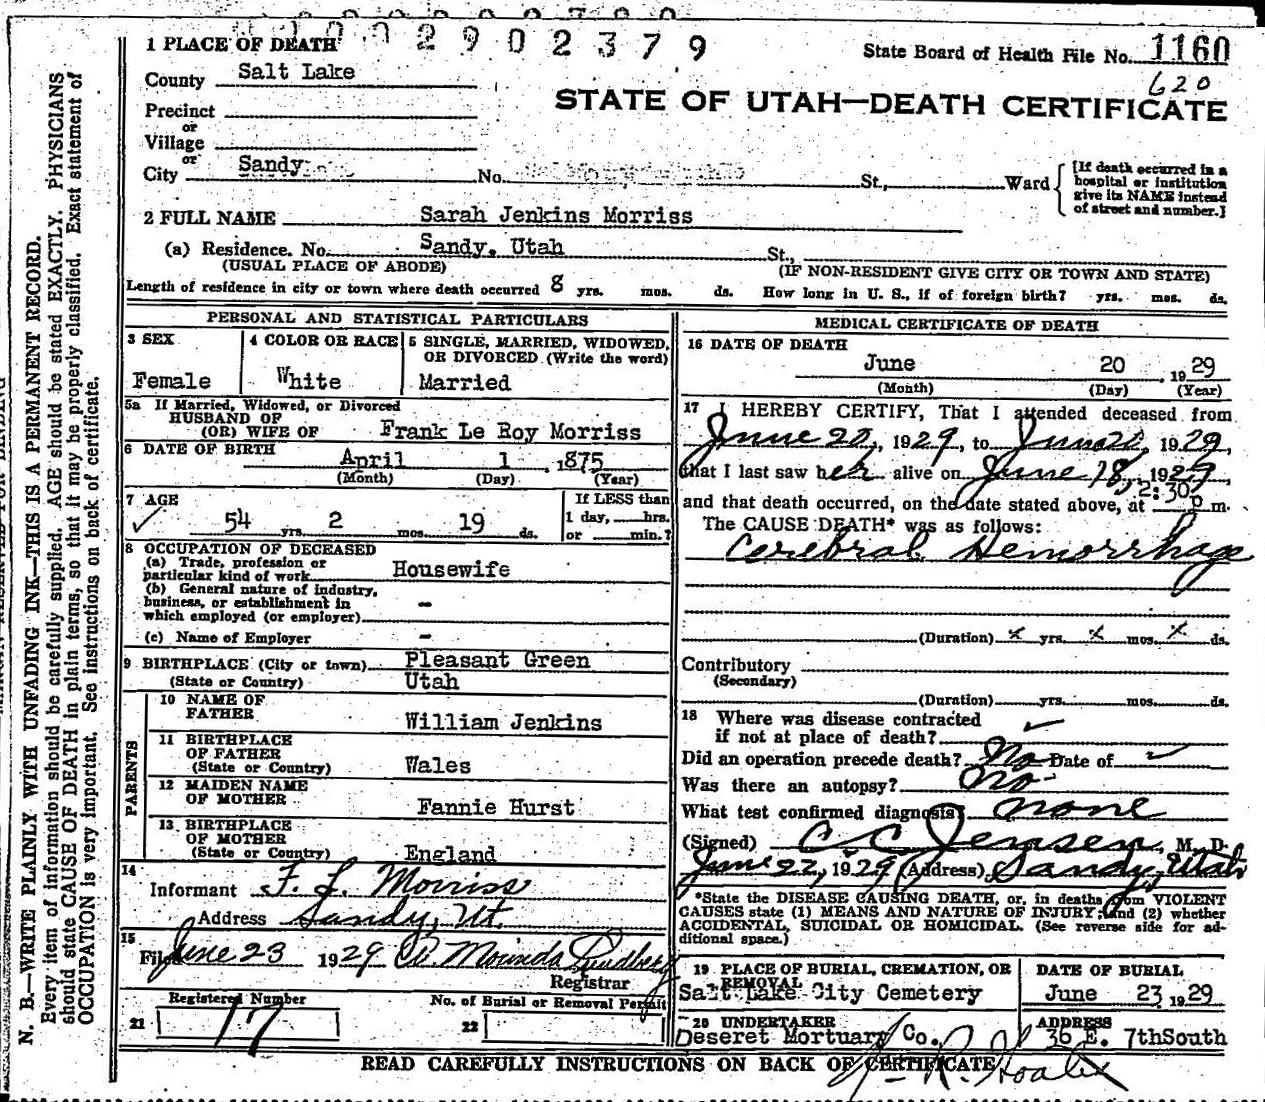 1002902379
1 PLACE OF DEATH
State Board of Health File No. 1160
620
County Salt Lake
STATE OF UTAH—DEATH CERTIFICATE
Precinct
or
Village
or
City Sandy No. St., Ward
[If death occurred in a hospital or institution give its NAME instead of street and number.]
2 FULL NAME Sarah Jenkins Morriss
(a) Residence. No. Sandy, Utah St.,
(USUAL PLACE OF ABODE) (IF NON-RESIDENT GIVE CITY OR TOWN AND STATE)
Length of residence in city or town where death occurred 8 yrs. mos. ds. How long in U. S., if of foreign birth? yrs. mos. ds.
PERSONAL AND STATISTICAL PARTICULARS
3 SEX
Female
4 COLOR OR RACE
White
5 SINGLE, MARRIED, WIDOWED,
OR DIVORCED (Write the word)
Married
5a If Married, Widowed, or Divorced
HUSBAND OF
(OR) WIFE OF Frank Le Roy Morriss
6 DATE OF BIRTH
April 1, 1875
(Month) (Day) (Year)
7 AGE
54 yrs. 2 mos. 19 ds.
If LESS than
1 day, hrs.
or min.?
8 OCCUPATION OF DECEASED
(a) Trade, profession or
particular kind of work Housewife
(b) General nature of industry,
business, or establishment in
which employed (or employer) -
(c) Name of Employer -
9 BIRTHPLACE (City or town) Pleasant Green
(State or Country) Utah
PARENTS
10 NAME OF
FATHER William Jenkins
11 BIRTHPLACE
OF FATHER
(State or Country) Wales
12 MAIDEN NAME
OF MOTHER Fannie Hurst
13 BIRTHPLACE
OF MOTHER
(State or Country) England
14
Informant F. L. Morriss
Address Sandy, Ut.
15
Filed June 23 1929
Registrar
Registered Number
21 17
No. of Burial or Removal Permit
22
MEDICAL CERTIFICATE OF DEATH
16 DATE OF DEATH
June 20, 1929
(Month) (Day) (Year)
17 I HEREBY CERTIFY, That I attended deceased from
June 20, 1929, to June 20, 1929,
that I last saw her alive on June 18, 1929,
and that death occurred, on the date stated above, at 2:30 p m.
The CAUSE DEATH* was as follows:
Cerebral Hemorrhage
(Duration) x yrs. x mos. x ds.
Contributory
(Secondary)
(Duration) yrs. mos. ds.
18 Where was disease contracted
if not at place of death?
Did an operation precede death? No Date of
Was there an autopsy? No
What test confirmed diagnosis? none
(Signed) C. C. Jensen, M. D.
June 22, 1929 (Address) Sandy, Utah
*State the DISEASE CAUSING DEATH, or, in deaths from VIOLENT
CAUSES state (1) MEANS AND NATURE OF INJURY; and (2) whether
ACCIDENTAL, SUICIDAL OR HOMICIDAL. (See reverse side for ad-
ditional space.)
19 PLACE OF BURIAL, CREMATION, OR
REMOVAL
Salt Lake City Cemetery
DATE OF BURIAL
June 23, 1929
20 UNDERTAKER
Deseret Mortuary Co.
ADDRESS
36 E. 7thSouth
READ CAREFULLY INSTRUCTIONS ON BACK OF CERTIFICATE
N. B.—WRITE PLAINLY WITH UNFADING INK—THIS IS A PERMANENT RECORD.
Every item of information should be carefully supplied. AGE should be stated EXACTLY. PHYSICIANS
should state CAUSE OF DEATH in plain terms, so that it may be properly classified. Exact statement of
OCCUPATION is very important. See instructions on back of certificate.